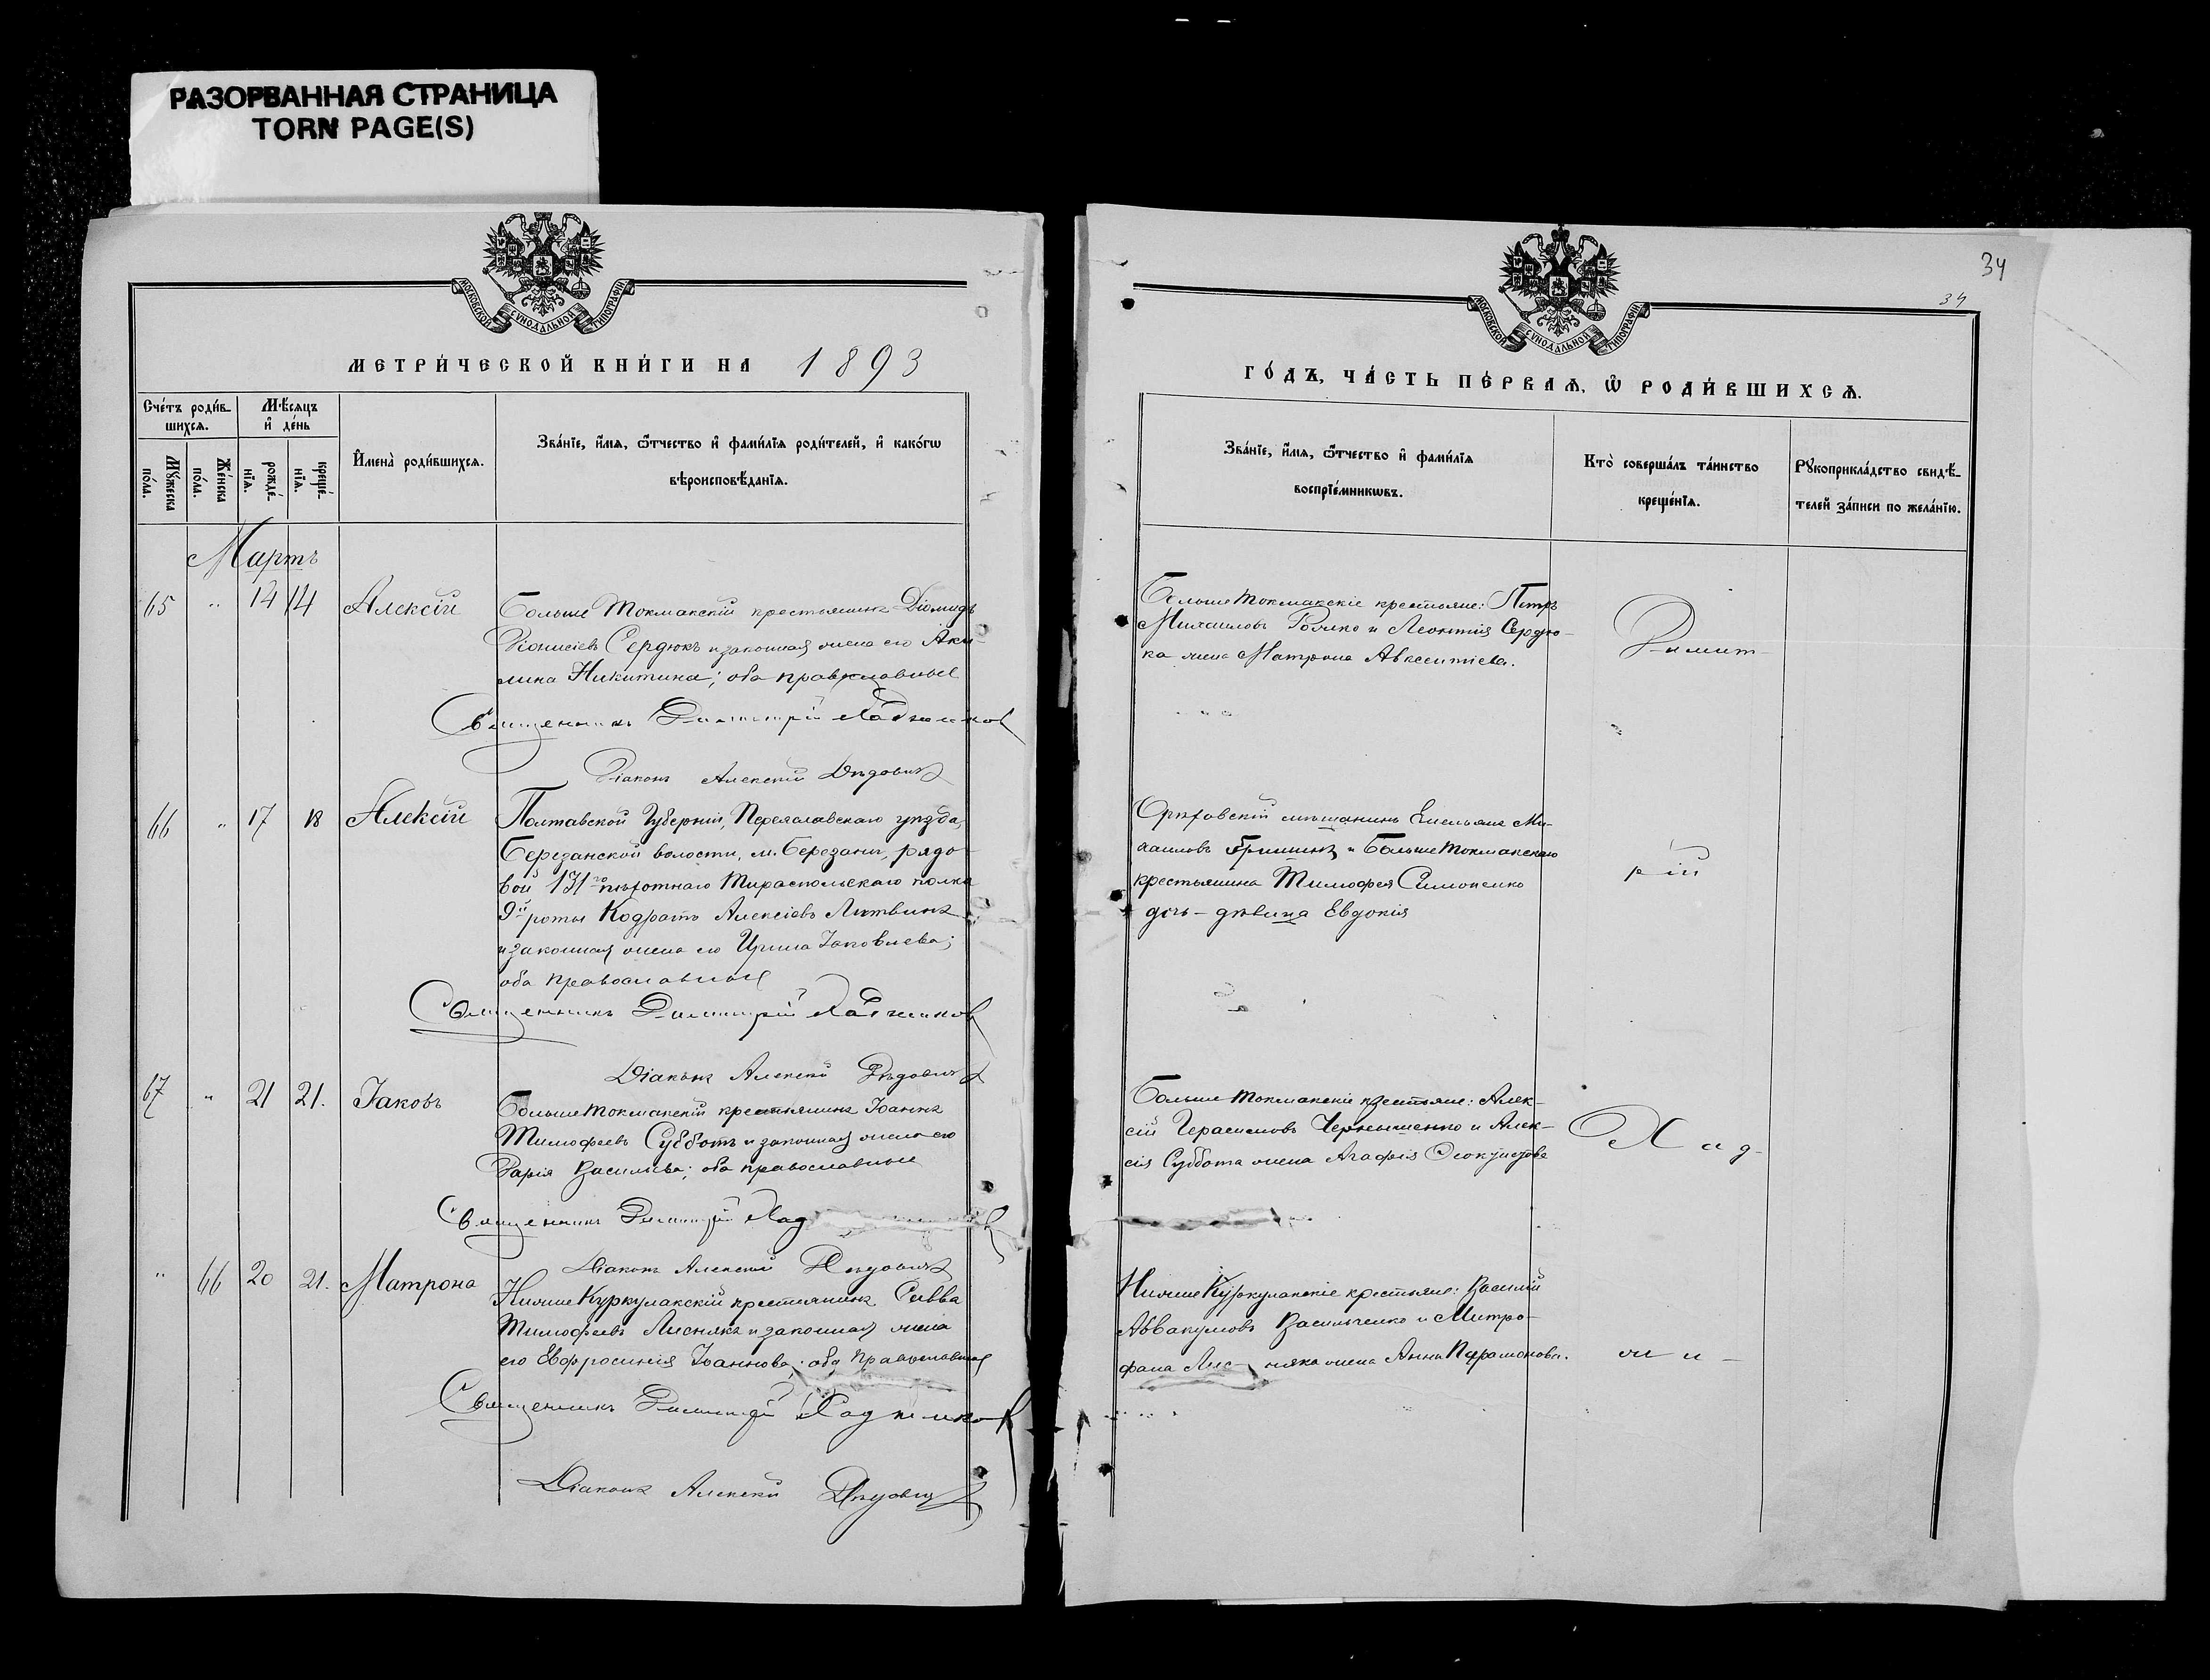 РАЗОРВАННАЯ СТРАНИЦА
TORN PAGE(S)
МОСКОВСКОЙ СУНОДАЛЬНОЙ ТИПОГРАФИИ
МЕТРИ́ЧЕСКОЙ КНИ́ГИ НА 1893
Сче́тъ роди́в-
шихсѧ.
Мѣ́сѧцъ
и҆ де́нь
Мꙋ́жеска
по́ла.
Же́нска
по́ла.
рожде́-
нїѧ.
креще́-
нїѧ.
И҆мена̀ роди́вшихсѧ.
Зва́нїе, и҆́мѧ, ѻ҆́тчество и҆ фами́лїѧ роди́телей, и҆ како́гѡ
вѣроисповѣ́данїѧ.
Мартъ
65 " 14 14 Алексій
Больше Токмакскій крестьянинъ Діомидъ
Діонисіевъ Сердюкъ и законная жена его Аки-
лина Никитина; оба православные
Священникъ Димитрій
Діаконъ Алексій Дѣдовичъ
66 " 17 18 Алексій
Полтавской Губерніи, Переяславскаго уѣзда,
Березанской волости, м. Березани, рядо-
вой 131го пѣхотнаго Тираспольскаго полка
9й роты Кодратъ Алексіевъ Литвинъ
и законная жена его Ирина Іаковлева;
оба православные
Священникъ Димитрій
Діаконъ Алексій Дѣдовичъ
67 " 21 21. Іаковъ
Больше Токмакскій крестьянинъ Іоаннъ
Тимофеевъ Субботъ и законная жена его
Дарія Васильева; оба православные
Священникъ Димитрій
Діаконъ Алексій Дѣдовичъ
" 66 20 21. Матрона
Нижше Куркулакскій крестьянинъ Савва
Тимофеевъ Леснякъ и законная жена
его Евфросинія Іоаннова; оба православные
Священникъ Димитрій
Діаконъ Алексій Дѣдовичъ
34
34
МОСКОВСКОЙ СУНОДАЛЬНОЙ ТИПОГРАФИИ
ГО́ДЪ, ЧА́СТЬ ПЕ́РВАѦ, Ѡ҆ РОДИ́ВШИХСѦ.
Зва́нїе, и҆́мѧ, ѻ҆́тчество и҆ фами́лїѧ
воспрїе́мникѡвъ.
Кто̀ соверша́лъ та́инство
креще́нїѧ.
Рꙋкоприкла́дство свидѣ́-
телей за́писи по жела́нїю.
Больше Токмакскіе крестьяне: Петръ
Михаиловъ и Леонтія Сердю-
ка жена Матрона Авксентіева.
Димит-
Орѣховскій мѣщанинъ Емельянъ Ми-
хаиловъ Гришинъ и Больше Токмакскаго
крестьянина Тимофея Симоненко
дочь - дѣвица Евдокія
рій
Больше Токмакскіе крестьяне: Алек-
сій Герасимовъ Чернышенко и Алек-
сія Суббота жена Агафія
Хад-
Нижше Куркулакскіе крестьяне: Василій
Аввакумовъ Васильченко и Митро-
фана Лесняка жена Анна Парамонова.
жи-